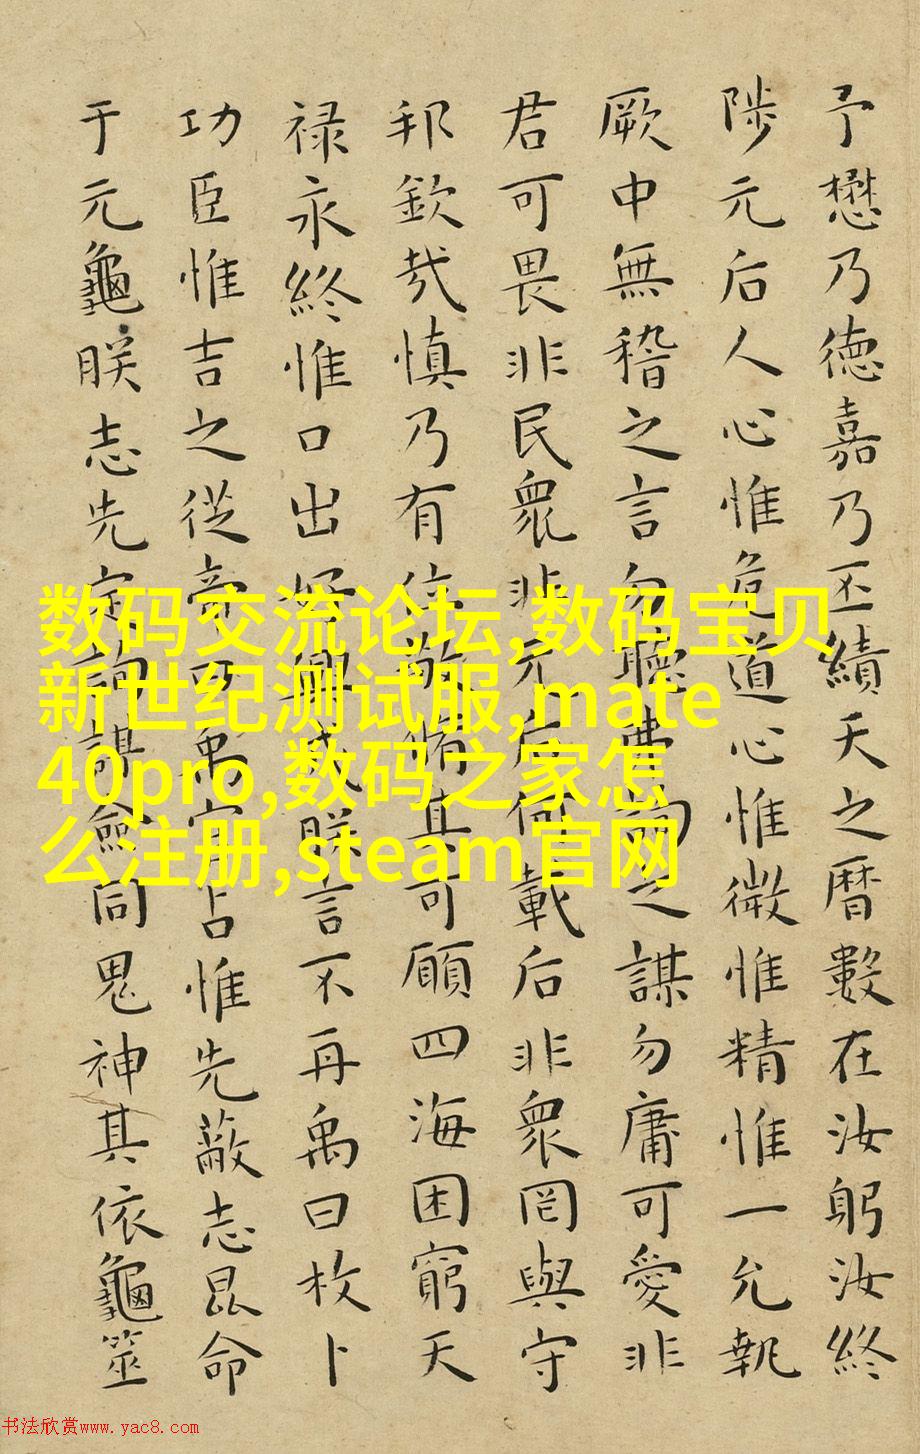 予懋乃德嘉乃丕績天之曆數在汝躬汝終
陟元后人心惟危道心惟微惟精惟一允執
厥中無稽之言勿聽弗詢之謀勿庸可愛非
君可畏非民衆非元后何戴后非衆罔與守
邦欽哉慎乃有位敬脩其可願四海困窮天
禄永終惟口出好興戎朕言不再禹曰枚卜
功臣惟吉之從帝曰禹官占惟先蔽志昆命
于元龜朕志先定詢謀僉同鬼神其依龜筮
数码交流论坛,数码宝贝
新世纪测试服,mate
40pro,数码之家怎
么注册,steam官网
书法欣赏www.yac8.com